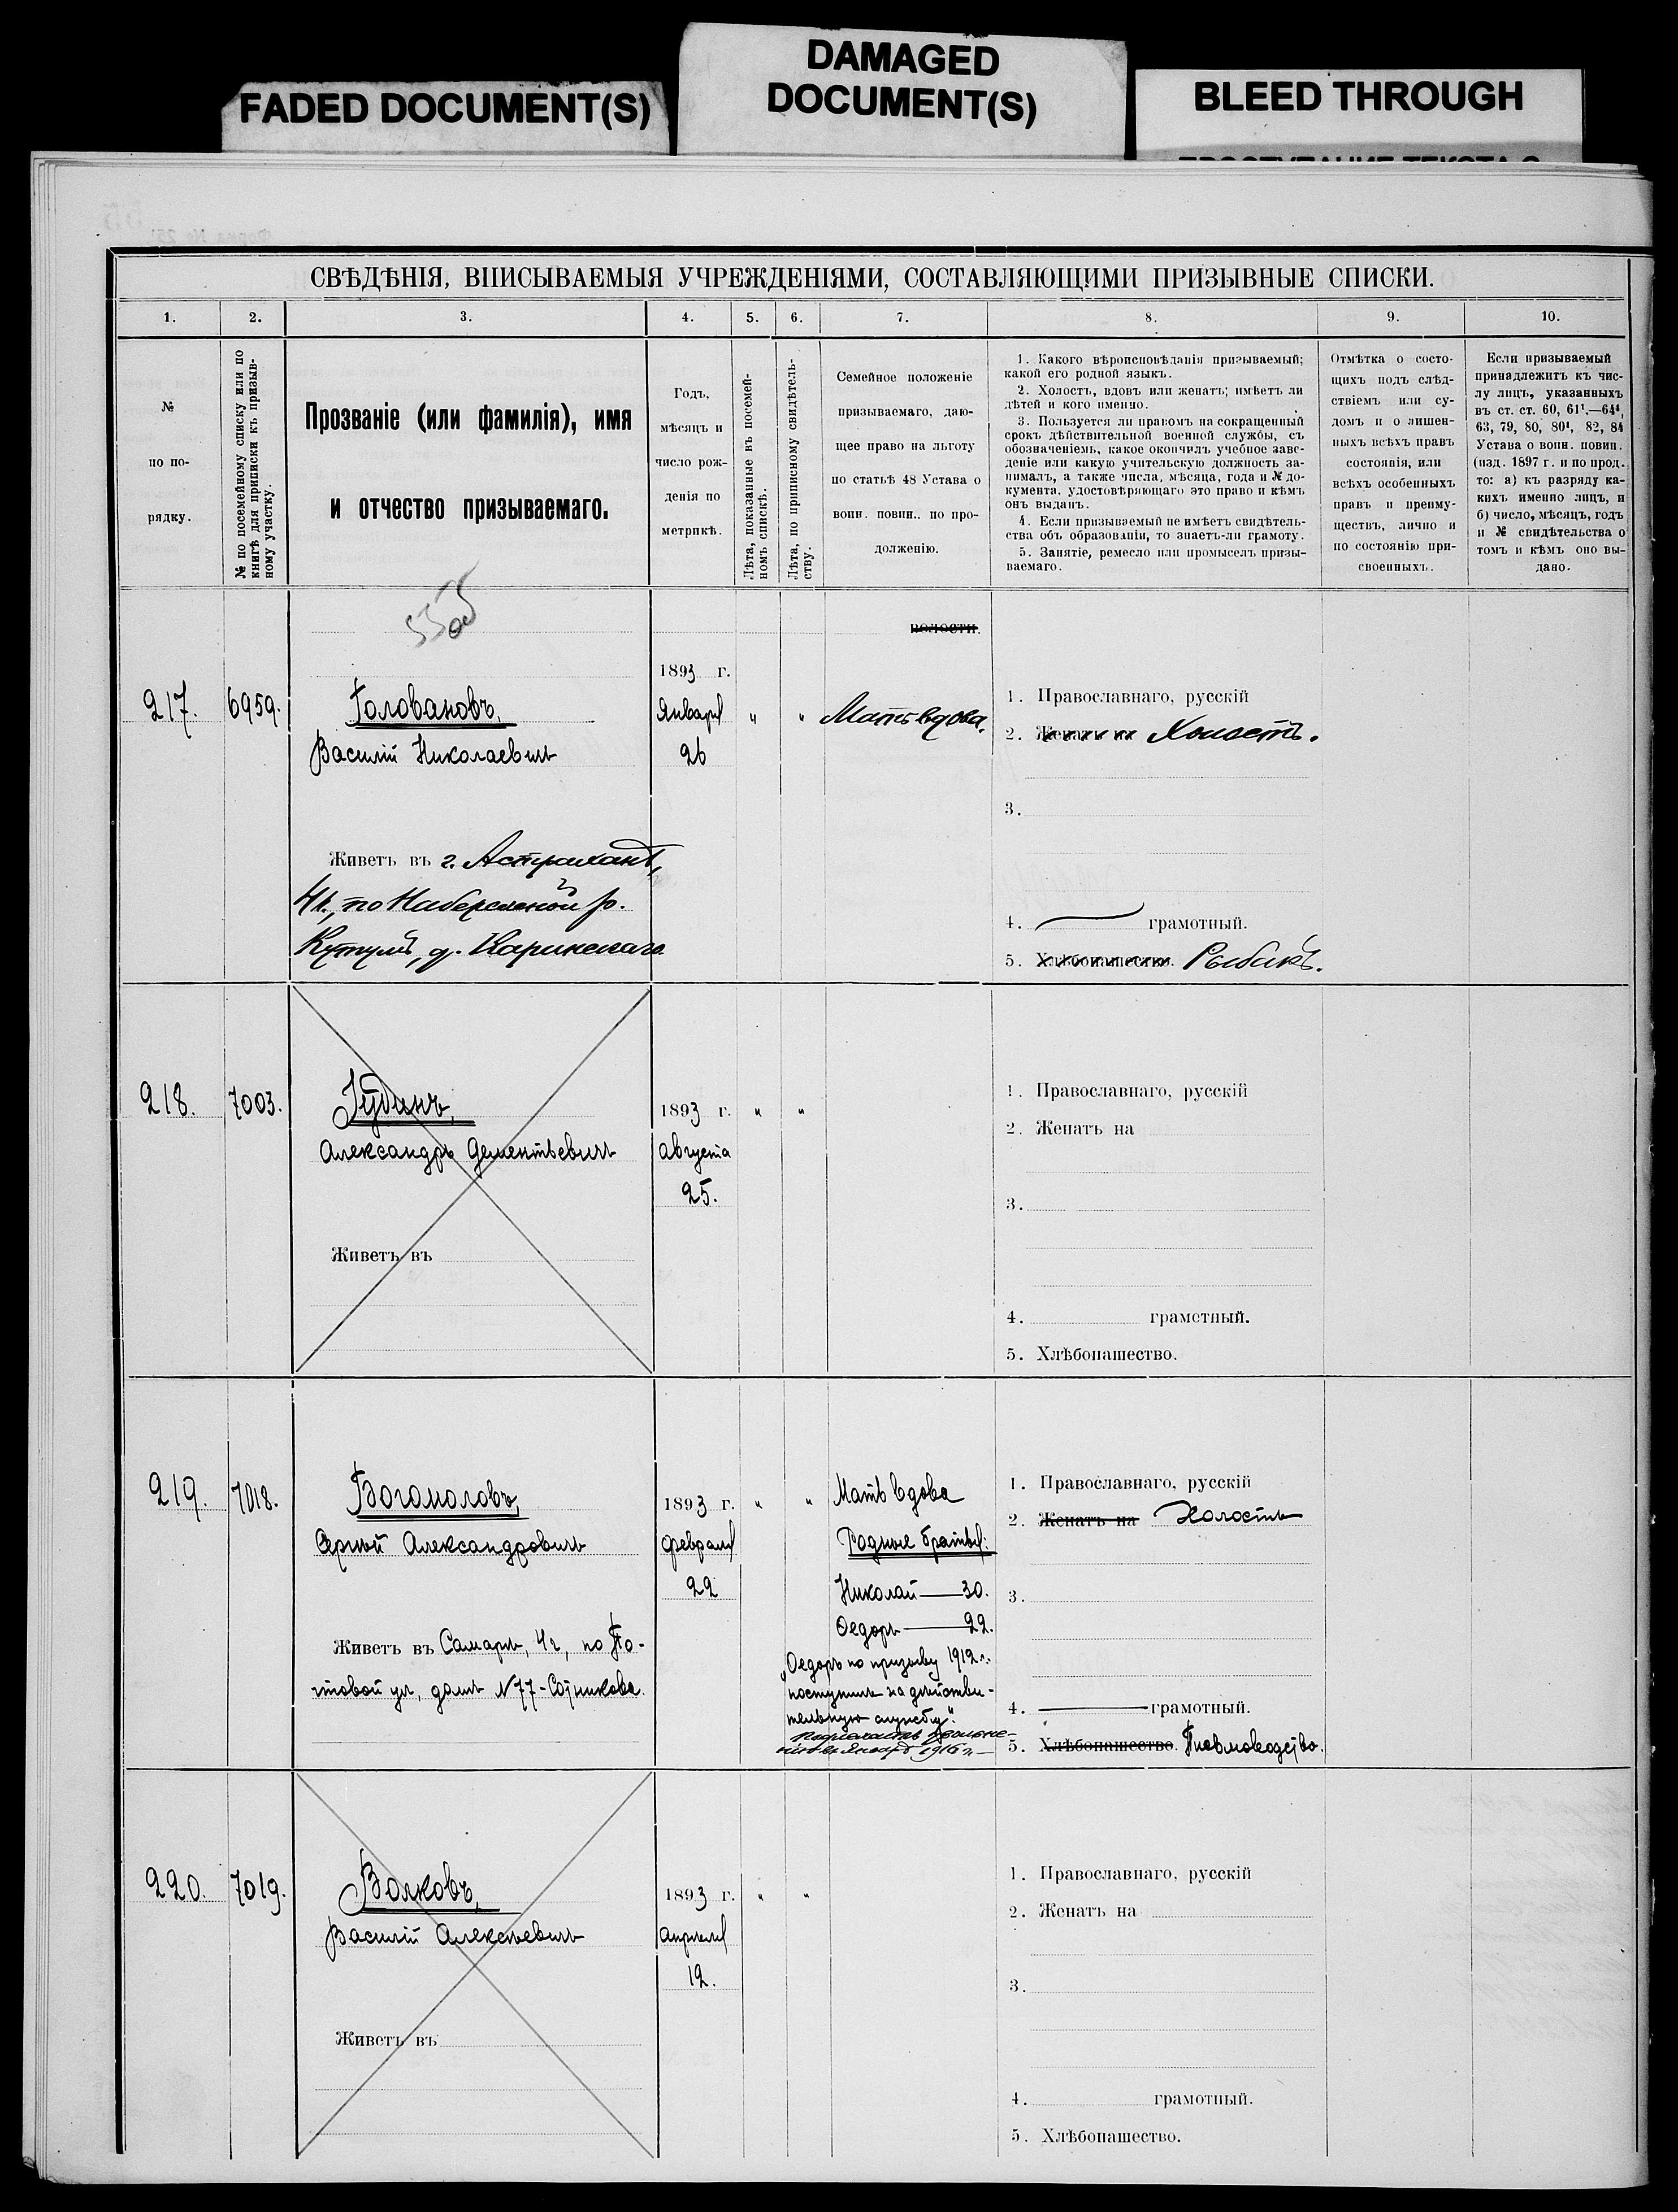 FADED DOCUMENT(S)
DAMAGED
DOCUMENT(S)
BLEED THROUGH
СВѢДѢНІЯ, ВПИСЫВАЕМЫЯ УЧРЕЖДЕНІЯМИ, СОСТАВЛЯЮЩИМИ ПРИЗЫВНЫЕ СПИСКИ.
1. 2. 3. 4. 5. 6. 7. 8. 9. 10.
№
по по-
рядку.
№ по посемейному списку или по
книгѣ для приписки къ призыв-
ному участку.
Прозваніе (или фамилія), имя
и отчество призываемаго.
Годъ,
мѣсяцъ и
число рож-
денія по
метрикѣ.
Лѣта, показанные въ посемей-
номъ спискѣ.
Лѣта, по приписному свидѣтель-
ству.
Семейное положеніе
призываемаго, даю-
щее право на льготу
по статьѣ 48 Устава о
воин. повин.. по про-
долженію.
1. Какого вѣроисповѣданія призываемый;
какой его родной языкъ.
2. Холостъ, вдовъ или женатъ; имѣетъ ли
дѣтей и кого именно.
3. Пользуется ли правомъ на сокращенный
срокъ дѣйствительной военной службы, съ
обозначеніемъ, какое окончилъ учебное заве-
деніе или какую учительскую должность за-
нималъ, а также числа, мѣсяца, года и № до-
кумента, удостовѣряющаго это право и кѣмъ
онъ выданъ.
4. Если призываемый не имѣетъ свидѣтель-
ства объ образованіи, то знаетъ-ли грамоту.
5. Занятіе, ремесло или промыселъ призы-
ваемаго.
Отмѣтка о состо-
щихъ подъ слѣд-
ствіемъ или су-
домъ и о лишен-
ныхъ всѣхъ правъ
состоянія, или
всѣхъ особенныхъ
правъ и преиму-
ществъ, лично и
по состоянію при-
своенныхъ.
Если призываемый
принадлежитъ къ чис-
лу лицъ, указанныхъ
въ ст. ст. 60, 61¹.—64⁴,
63, 79, 80, 80¹, 82, 84
Устава о воин. повин.
(изд. 1897 г. и по прод.
то: а) къ разряду ка-
кихъ именно лицъ, и
б) число, мѣсяцъ, годъ
и № свидѣтельства о
томъ и кѣмъ оно вы-
дано.
волости.
217. 6959.
Головановъ,
Василій Николаевичъ
1893 г.
Января
26
" "
Мать вдова.
1. Православнаго, русскій
2. Женатъ на Холостъ.
3.
Живетъ въ г. Астрахани,
4 ч., по Набережной р.
Кутумъ, д. Каринскаго
4. грамотный.
5. Хлѣбопашество. Рыбакъ.
218. 7003.
Губинъ,
Александръ Дементьевичъ
1893 г.
Августа
25.
" "
1. Православнаго, русскій
2. Женатъ на
3.
Живетъ въ
4. грамотный.
5. Хлѣбопашество.
219. 7018.
Богомоловъ,
Сергѣй Александровичъ
1893 г.
Февраля
22
" "
Мать вдова
Родные братья:
Николай — 30.
Ѳедоръ — 22.
"Ѳедоръ по призыву 1912 г.
поступилъ на дѣйстви-
тельную службу".
1. Православнаго, русскій
2. Женатъ на Холостъ
3.
Живетъ въ Самарѣ, 4 ч, по По-
чтовой ул, домъ №77-Сотникова.
4. грамотный.
5. Хлѣбопашество. Письмоводство.
220. 7019.
Волковъ,
Василій Алексѣевичъ
1893 г.
Апрѣля
12.
" "
1. Православнаго, русскій
2. Женатъ на
3.
Живетъ въ
4. грамотный.
5. Хлѣбопашество.